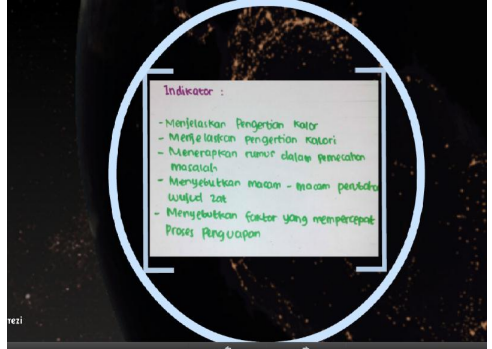 Indikator :
- Menjelaskan Pengertian Kalor
- Menjelaskan pengertian Kalori
- Menerapkan rumus dalam pemecahan
masalah
- Menyebutkan macam - macam perubaha
wujud zat
- Menyebutkan faktor yang mempercepat
Proses Penguapan
rezi